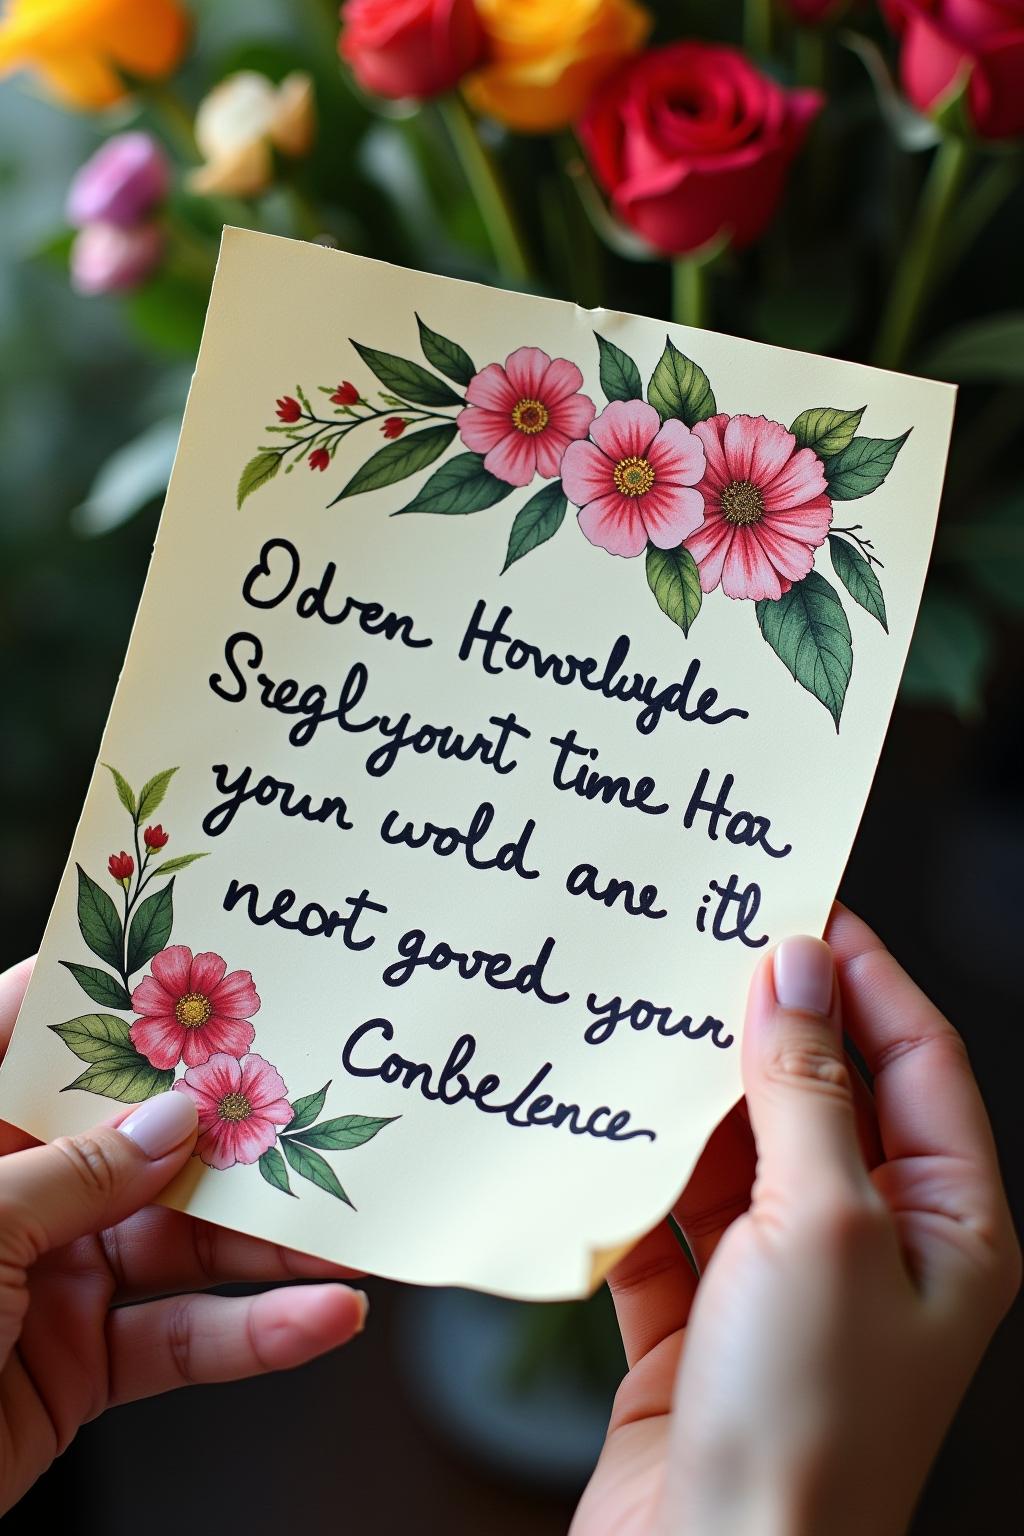 Odven Howeluyde
Sreglyourt time Hoa
youn wold ane itl
neort goved your
Conbelence